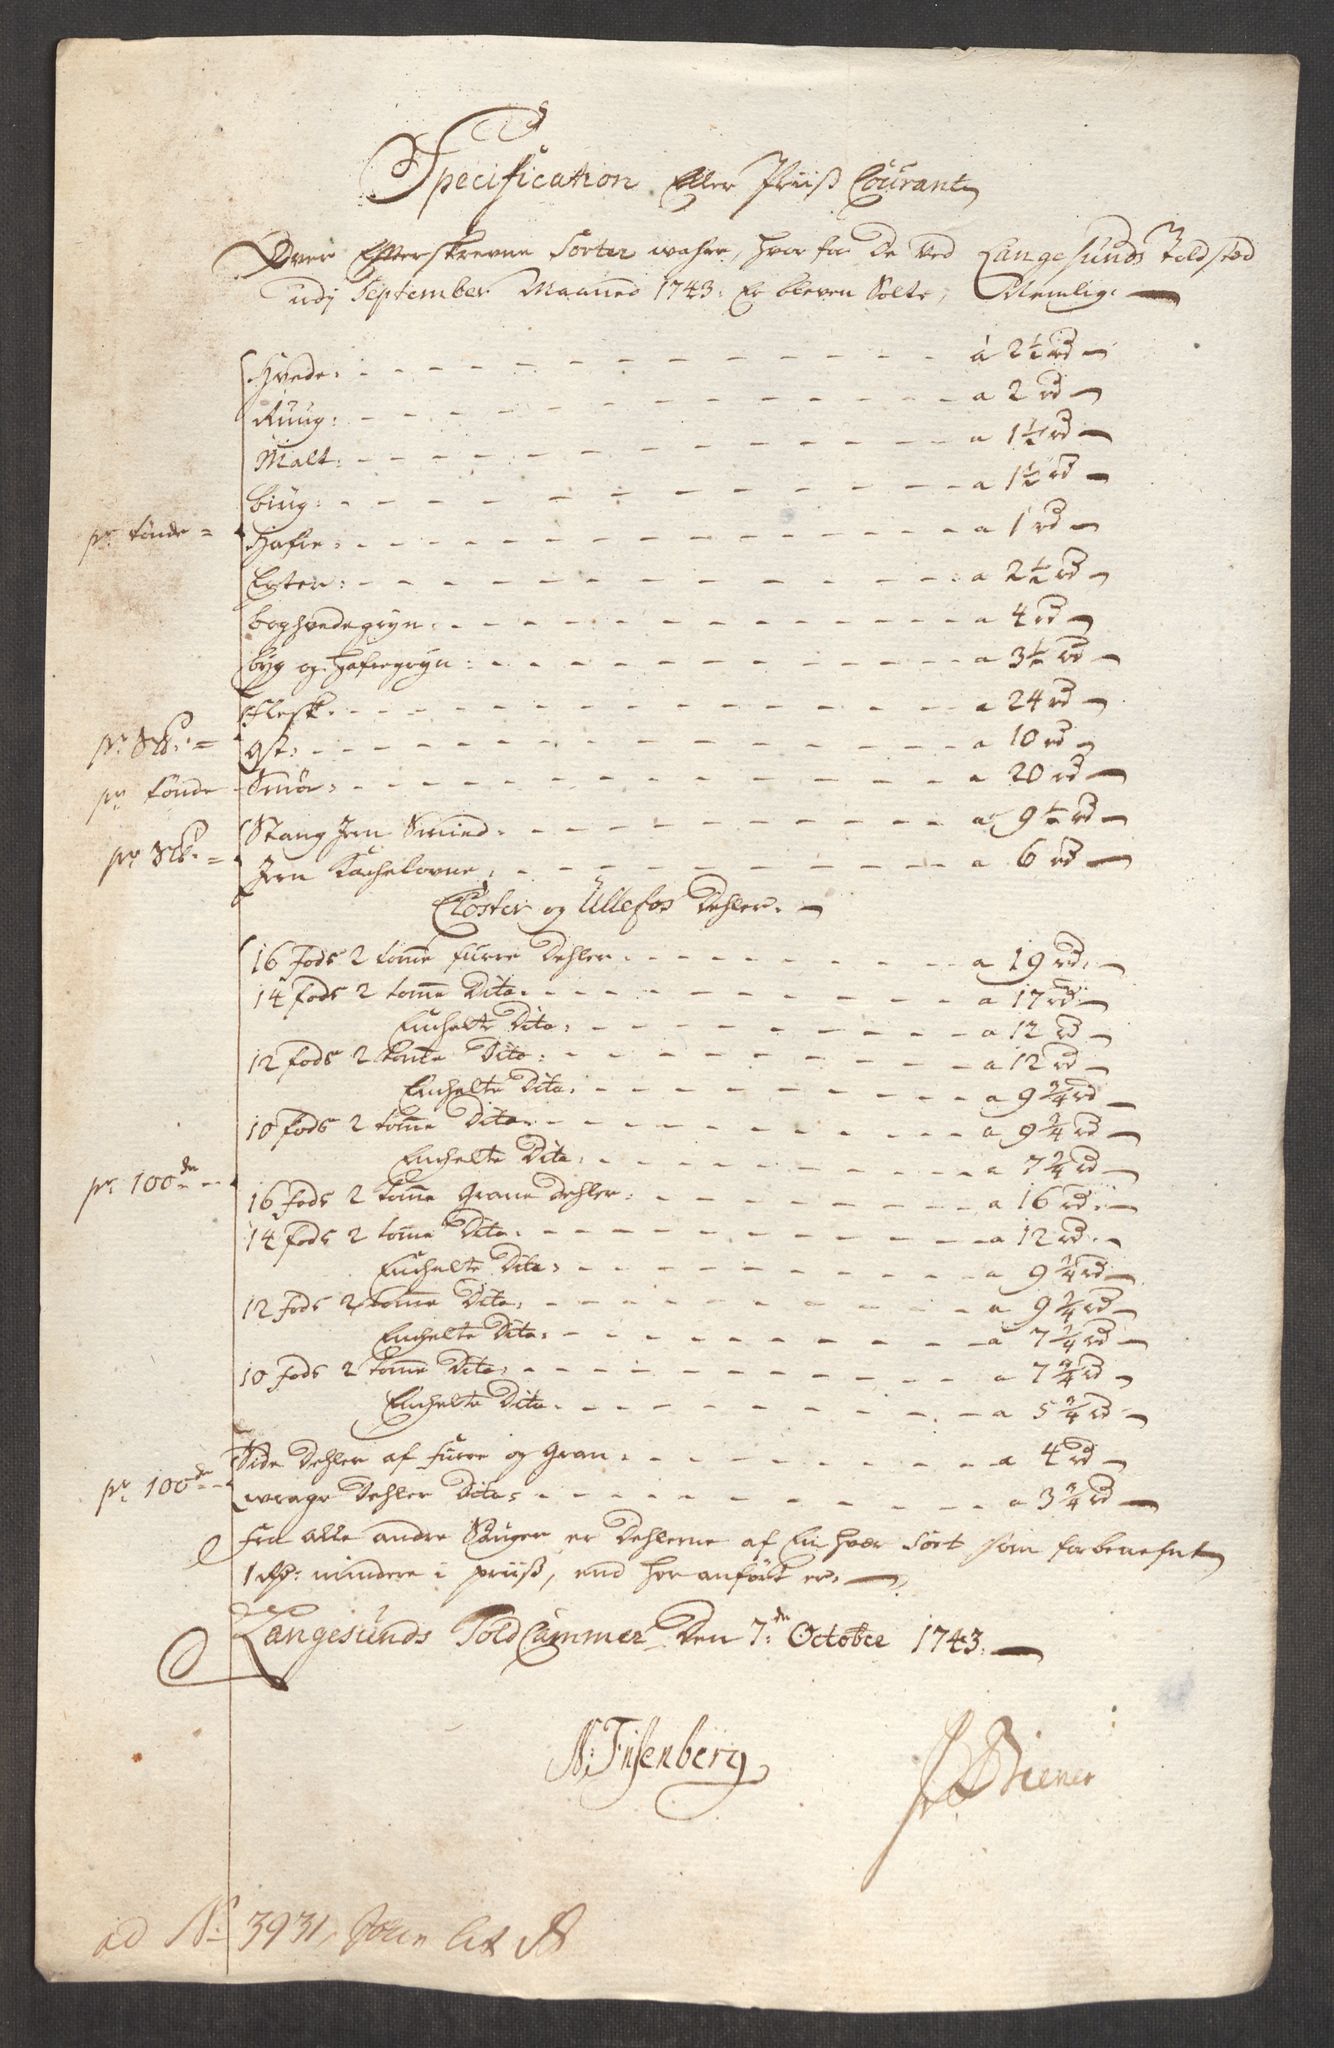 Specification Eller Priiß Courant
Over Efterskrevne Sorter wahre, hvor for De ved Langesunds Toldsted
udj September Maaned 1743: Er bleven Solte, Nemlig:
Hvede: a 2½ rd
Ruug: a 2 rd
Malt: a 1½ rd
biug: a 1½ rd
pr tønde = Hafre: a 1 rd
Erter: a 2½ rd
boghvedegryn: a 4 rd
byg og hafregryn: a 3½ rd
Flesk: a 24 rd
pr S℔: = Ost: a 10 rd
pr tønde Smör: a 20 rd
Stang Jern Smied: a 9½ rd
pr S℔: = Jern Kachelovne: a 6 rd
Closter og Ullefos Dehler:
16 Fods 2 tomme furre Dehler: a 19 rd:
14 fods 2 tomme Dito: a 17 rd:
Enchelte Dito: a 12 rd
12 fods 2 tomme Dito: a 12 rd
Enchelte Dito: a 9¾ rd
10 fods 2 tomme Dito: a 9¾ rd
Enchelte Dito: a 7¾ rd
pr 100de 16 Fods 2 tomme Grane Dehler: a 16 rd:
14 fods 2 tomme Dito: a 12 rd:
Enchelte Dito: a 9¾ rd
12 Fods 2 tomme Dito: a 9¾ rd
Enchelte Dito: a 7¾ rd
10 Fods 2 tomme Dito: a 7¾ rd
Enchelte Dito: a 5¾ rd
Side Dehler af Furre og Gran: a 4 rd
pr 100de wrage Dehler Dito: a 3¾ rd
Fra alle andre Sauger er Dehlerne af En hver Sort som forbenefnt
1 Rdr: mindere i priiß, end her anfört er:
Langesunds Told Cammer Den 7de October 1743.
N: Fiisenberg
Wiener
ad No 3931, Lit A